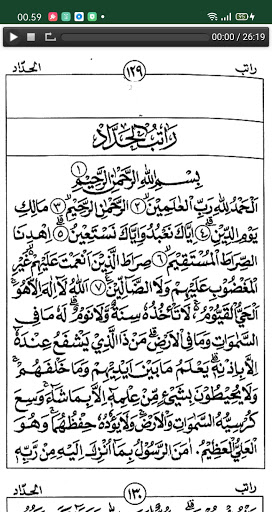 00.59
00:00 / 26:19
راتب ١٢٩ الحدّاد
رَاتِبُ الْحَدَّادِ
بِسْمِ اللهِ الرَّحْمٰنِ الرَّحِيْمِ ١
اَلْحَمْدُ لِلّٰهِ رَبِّ الْعٰلَمِيْنَ ٢ الرَّحْمٰنِ الرَّحِيْمِ ٣ مَالِكِ
يَوْمِ الدِّيْنِ ٤ اِيَّاكَ نَعْبُدُ وَاِيَّاكَ نَسْتَعِيْنُ ٥ اِهْدِنَا
الصِّرَاطَ الْمُسْتَقِيْمَ ٦ صِرَاطَ الَّذِيْنَ اَنْعَمْتَ عَلَيْهِمْ غَيْرِ
الْمَغْضُوْبِ عَلَيْهِمْ وَلَا الضَّالِّيْنَ ٧ اَللهُ لَا اِلٰهَ اِلَّا هُوَ
الْحَيُّ الْقَيُّوْمُ لَا تَأْخُذُهُ سِنَةٌ وَلَا نَوْمٌ لَهُ مَا فِى
السَّمٰوَاتِ وَمَا فِى الْاَرْضِ مَنْ ذَا الَّذِيْ يَشْفَعُ عِنْدَهُ
اِلَّا بِاِذْنِهِ يَعْلَمُ مَا بَيْنَ اَيْدِيْهِمْ وَمَا خَلْفَهُمْ
وَلَا يُحِيْطُوْنَ بِشَيْءٍ مِنْ عِلْمِهِ اِلَّا بِمَا شَاءَ وَسِعَ
كُرْسِيُّهُ السَّمٰوَاتِ وَالْاَرْضَ وَلَا يَؤُدُهُ حِفْظُهُمَا وَهُوَ
الْعَلِيُّ الْعَظِيْمُ. اٰمَنَ الرَّسُوْلُ بِمَا اُنْزِلَ اِلَيْهِ مِنْ رَبِّهِ
راتب ١٣٠ الحدّاد